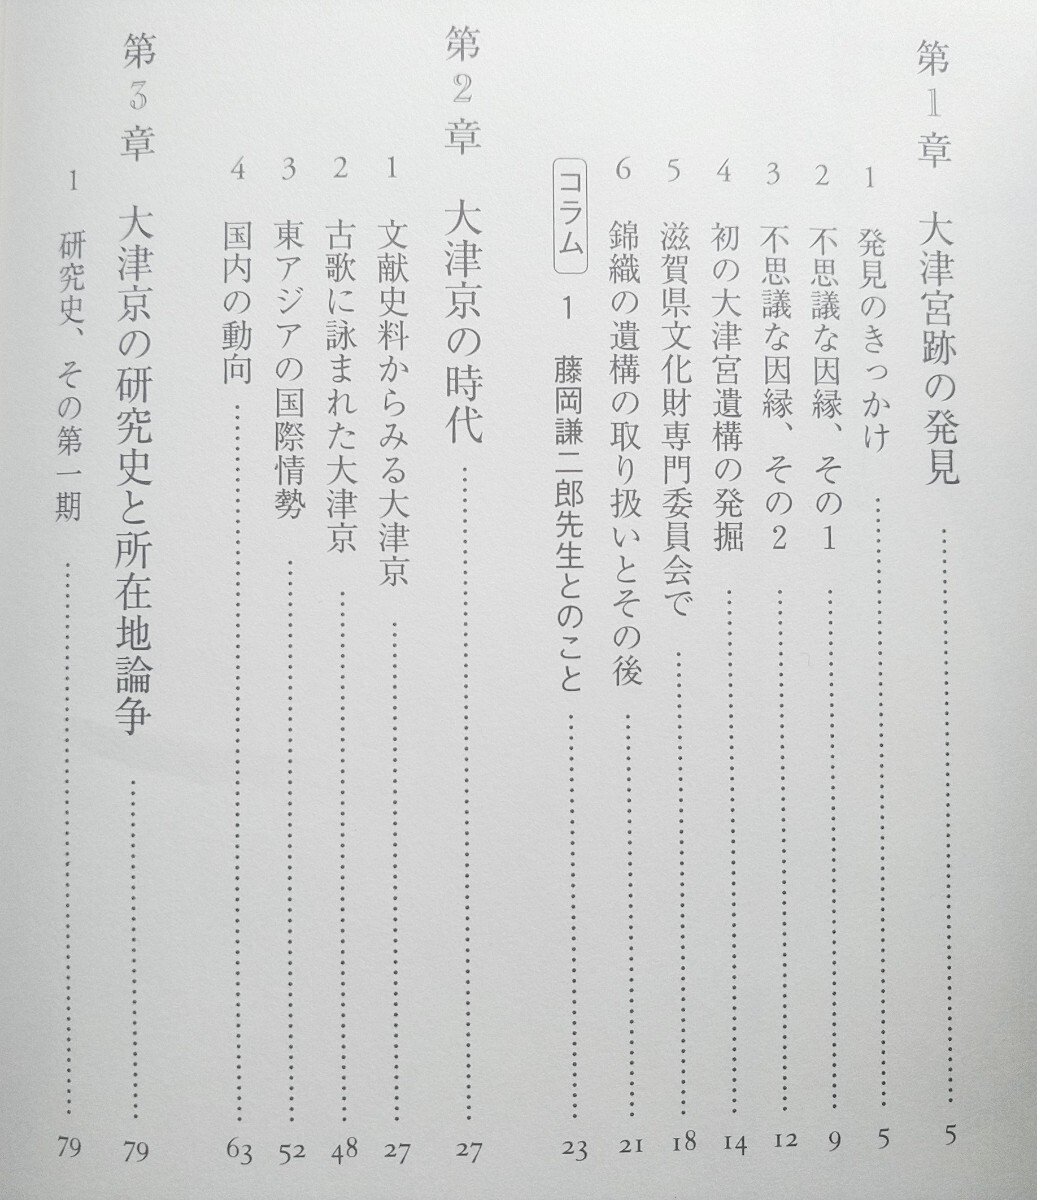 第1章　大津宮跡の発見……………5
1　発見のきっかけ……………5
2　不思議な因縁、その1……………9
3　不思議な因縁、その2……………12
4　初の大津宮遺構の発掘……………14
5　滋賀県文化財専門委員会で……………18
6　錦織の遺構の取り扱いとその後……………21
コラム　1　藤岡謙二郎先生とのこと……………23
第2章　大津京の時代……………27
1　文献史料からみる大津京……………27
2　古歌に詠まれた大津京……………48
3　東アジアの国際情勢……………52
4　国内の動向……………63
第3章　大津京の研究史と所在地論争……………79
1　研究史、その第一期……………79